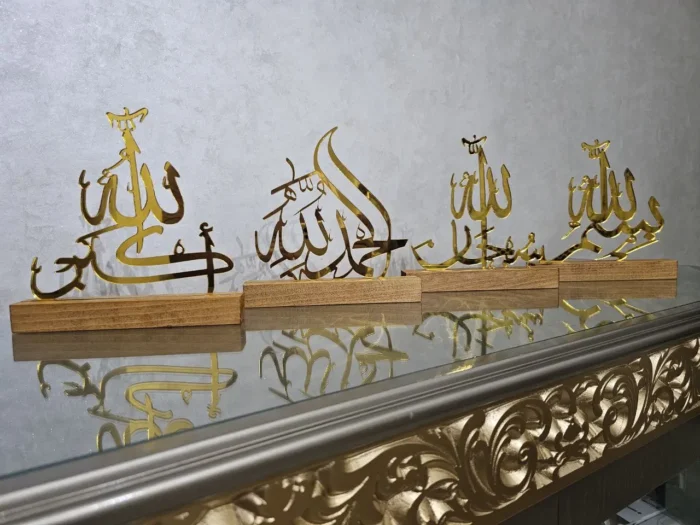 بسم الله
سبحان الله
الحمد لله
الله أكبر